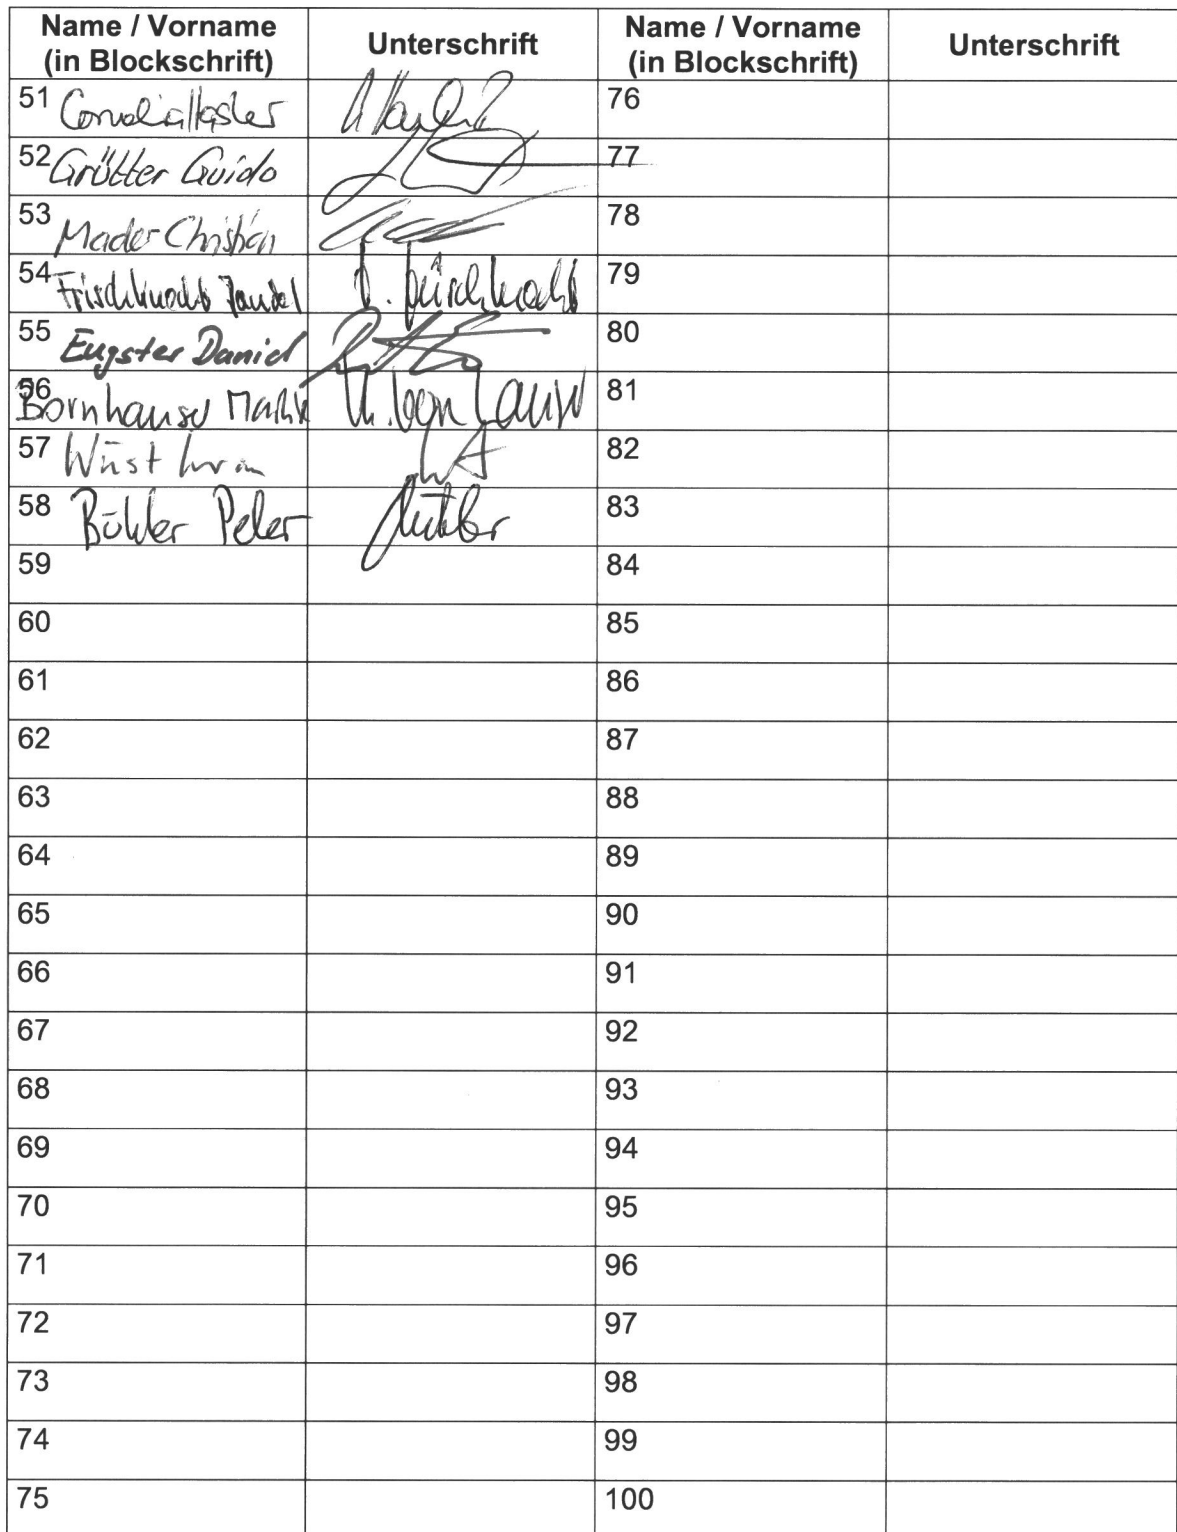 Name / Vorname
(in Blockschrift)
Unterschrift
Name / Vorname
(in Blockschrift)
Unterschrift
51 Cornelia Hasler
76
52 Grütter Guido
77
53 Mader Christian
78
54 Frischknecht
79
55 Eugster Daniel
80
56 Bornhauser Martin
81
57 Wüst
82
58 Bühler Peter
83
59
84
60
85
61
86
62
87
63
88
64
89
65
90
66
91
67
92
68
93
69
94
70
95
71
96
72
97
73
98
74
99
75
100